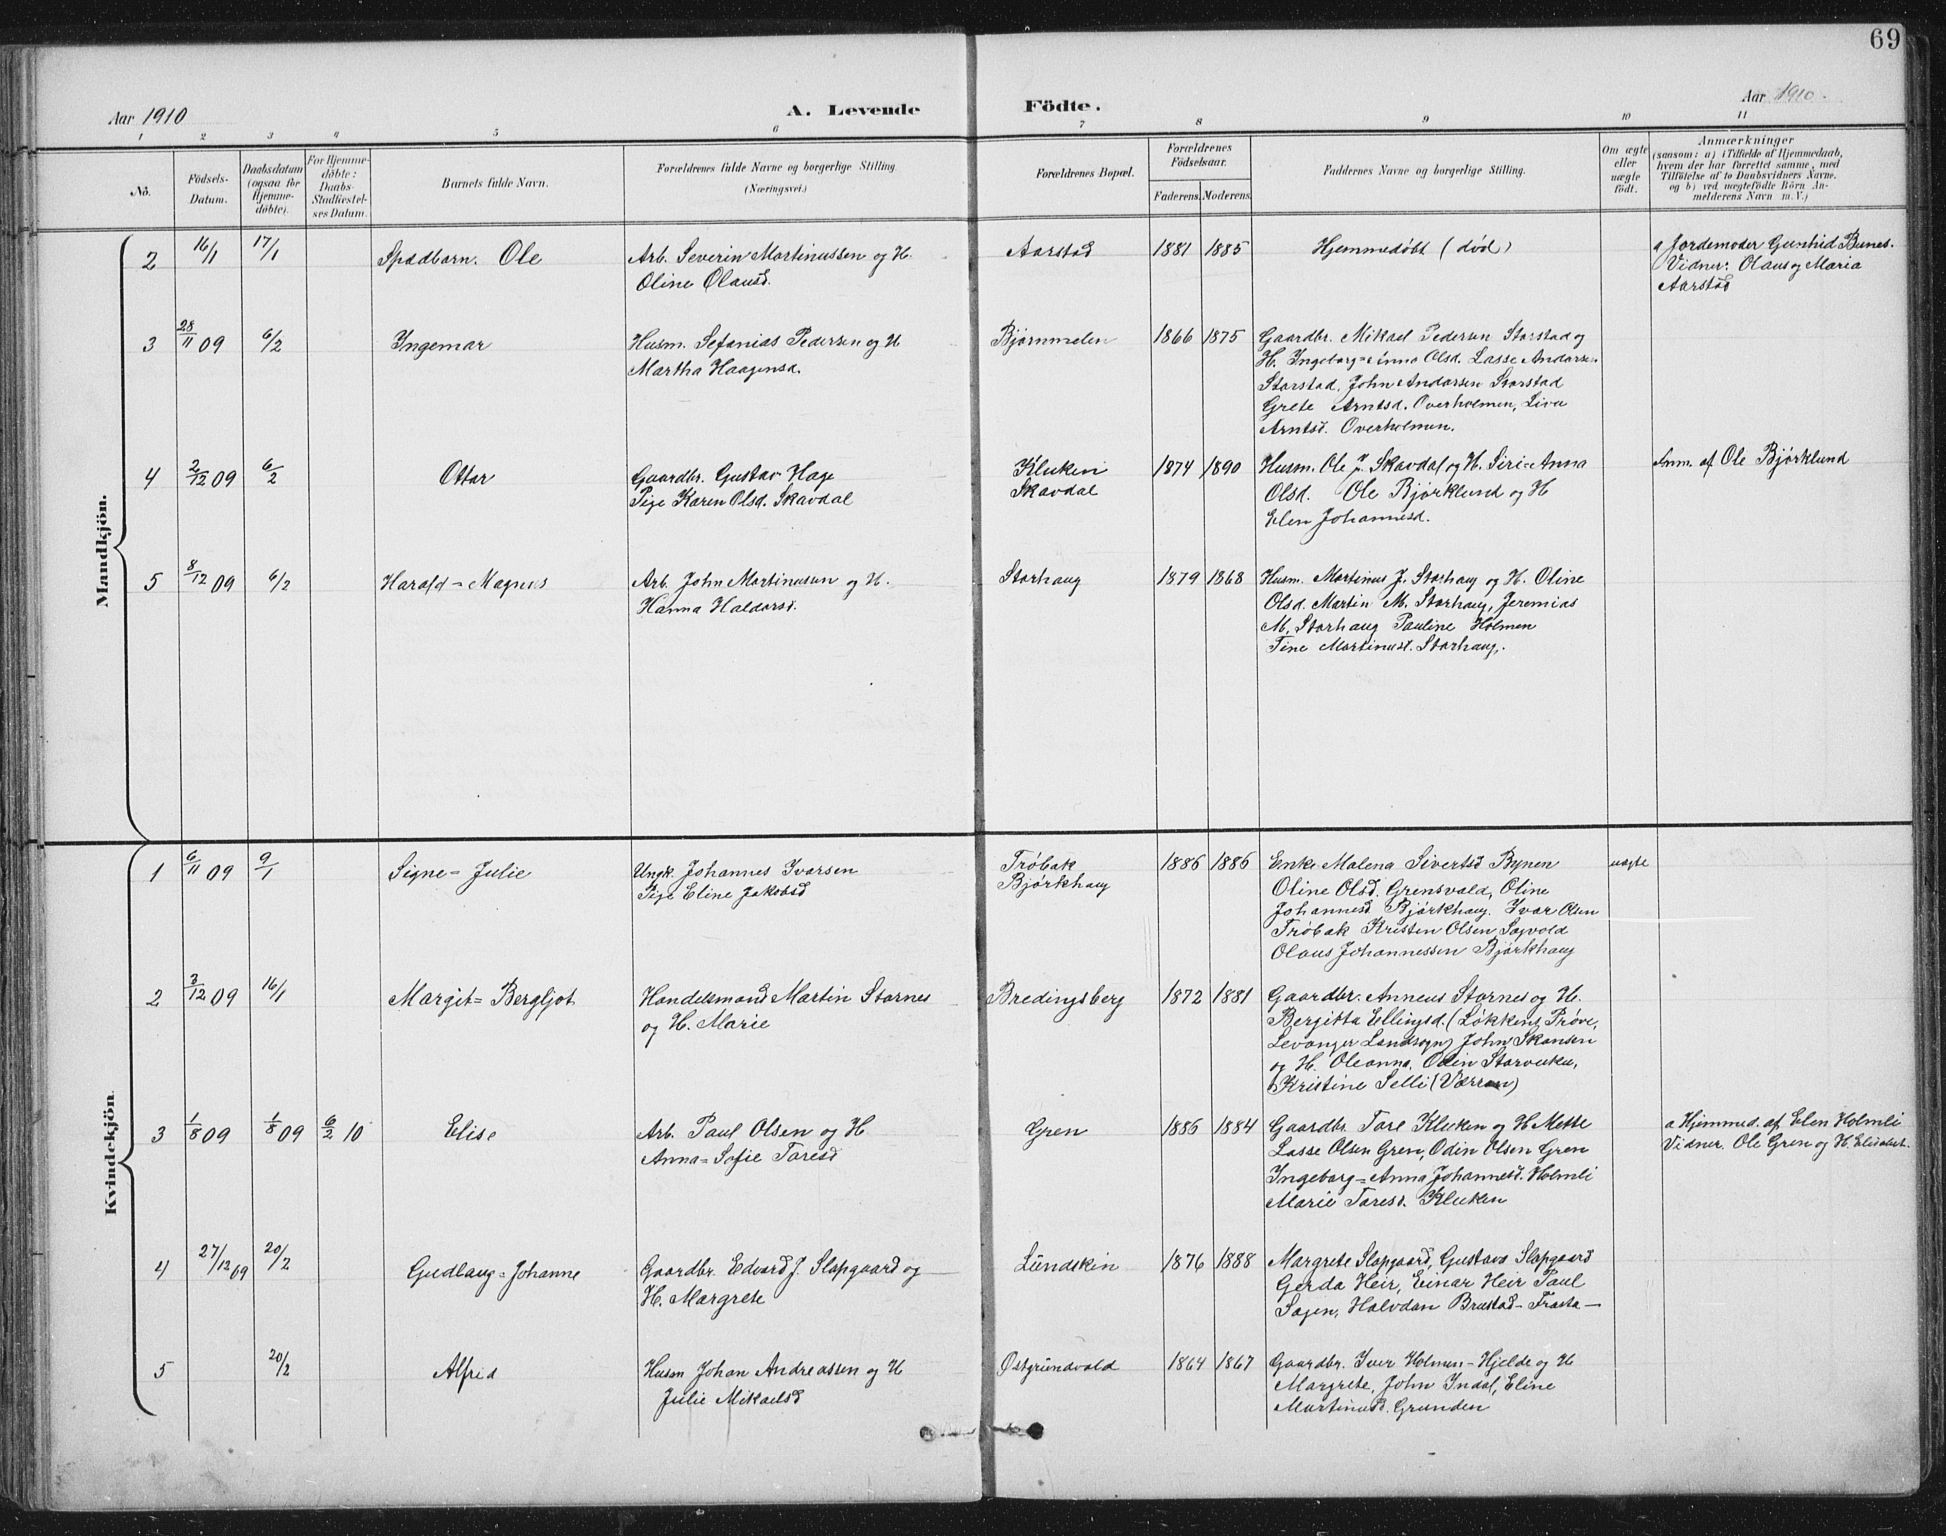 69
Aar 1910
A. Levende Födte.
Aar 1910.
1 2 3 4 5 6 7 8 9 10 11
Nô.
Födsels-
Datum.
Daabsdatum
(ogsaa for
Hjemme-
döbte).
For Hjemme-
döbte:
Daabs-
Stadfæstel-
ses Datum.
Barnets fulde Navn.
Forældrenes fulde Navne og borgerlige Stilling.
(Næringsvei.)
Forældrenes Bopæl.
Forældrenes
Födselsaar.
Faderens. Moderens.
Faddernes Navne og borgerlige Stilling.
Om ægte
eller
uægte
födt.
Anmærkninger
(saasom: a) i Tilfælde af Hjemmedaab,
hvem der har forrettet samme, med
Tilföielse af to Daabsvidners Navne,
og b) ved uægtefödte Börn An-
melderens Navn m. V.)
Mandkjön.
2 16/1 17/1 Spædbarn. Ole
Arb. Severin Martinussen og H.
Oline Olausd.
Aarstad 1881 1885
Hjemmedøbt (død)
a Jordemoder Gunhid Bunes.
Vidner: Olaus og Maria
Aarstad
3 28/11 09 6/2 Ingemar
Husm. Sefanias Pedersen og H
Martha Haagensd.
Bjørnmelen 1866 1875
Gaardbr. Mikael Pedersen Storstad og
H. Ingeborg=Anna Olsd. Lasse Andersen
Storstad, John Andersen Storstad
Grete Arntsd. Overholmen, Liva
Arntsd. Overholmen.
4 2/12 09 6/2 Ottar
Gaardbr. Gustav Hage
Pige Karen Olsd. Skavdal
Kluken
Skavdal
1874 1890
Husm. Ole J. Skavdal og H. Siri=Anna
Olsd. Ole Bjørklund og H
Elen Johannesd.
Anm. af Ole Bjørklund
5 8/12 09 6/2 Harald=Magnus
Arb. John Martinusen og H.
Hanna Haldorsd.
Storhaug 1879 1868
Husm. Martinus J. Storhaug og H. Oline
Olsd. Martin M. Storhaug, Jeremias
M. Storhaug Pauline Holmen
Tine Martinusd. Storhaug.
Kvindekjön.
1 6/11 09 9/1 Signe=Julie
Ungk. Johannes Ivarsen
Pige Eline Jakobsd
Trøbak
Bjørkhaug
1886 1886
Enke Malena Sivertsd Bynen
Oline Olsd. Grensvald, Oline
Johannesd Bjørkhaug. Ivar Olsen
Trøbak Kristen Olsen, Sagvold
Olaus Johannessen Bjørkhaug
uægte
2 3/12 09 16/1 Margit=Bergljot
Handelsmand Martin Stornes
og H. Marie
Bredingsberg 1872 1881
Gaardbr. Anneus Stornes og H.
Bergitta Ellingsd. (Løkken, Prøve,
Levanger Landsogn) John Skansen
og H. Oleanna, Odin Storvuku,
Kristine Selli (Værran)
3 1/8 09 1/8 09 6/2 10 Elise
Arb. Paul Olsen og H
Anna=Sofie Toresd
Gren 1886 1884
Gaardbr. Tore Kluken og H. Mette
Lasse Olsen Gren, Odin Olsen Gren
Ingeborg=Anna Johannesd. Holmli
Marie Toresd. Kluken
a Hjemmed. af Elen Holmli
Vidner. Ole Gren og H. Elisabet.
4 27/12 09 20/2 Gudlaug=Johanne
Gaardbr. Edvard J. Slapgaard og
H. Margrete
Lundskin 1876 1888
Margrete Slapgaard, Gustava Slapgaard
Gerda Heir, Einar Heir Paul
Sagen, Halvdan Brustad - Frosta -
5 20/2 Alfrid
Husm Johan Andreassen og H
Julie Mikaelsd
Østgrundvald 1864 1867
Gaardbr. Iver Holmen - Hjelde og H
Margrete, John Indal, Eline
Martinusd. Grunden